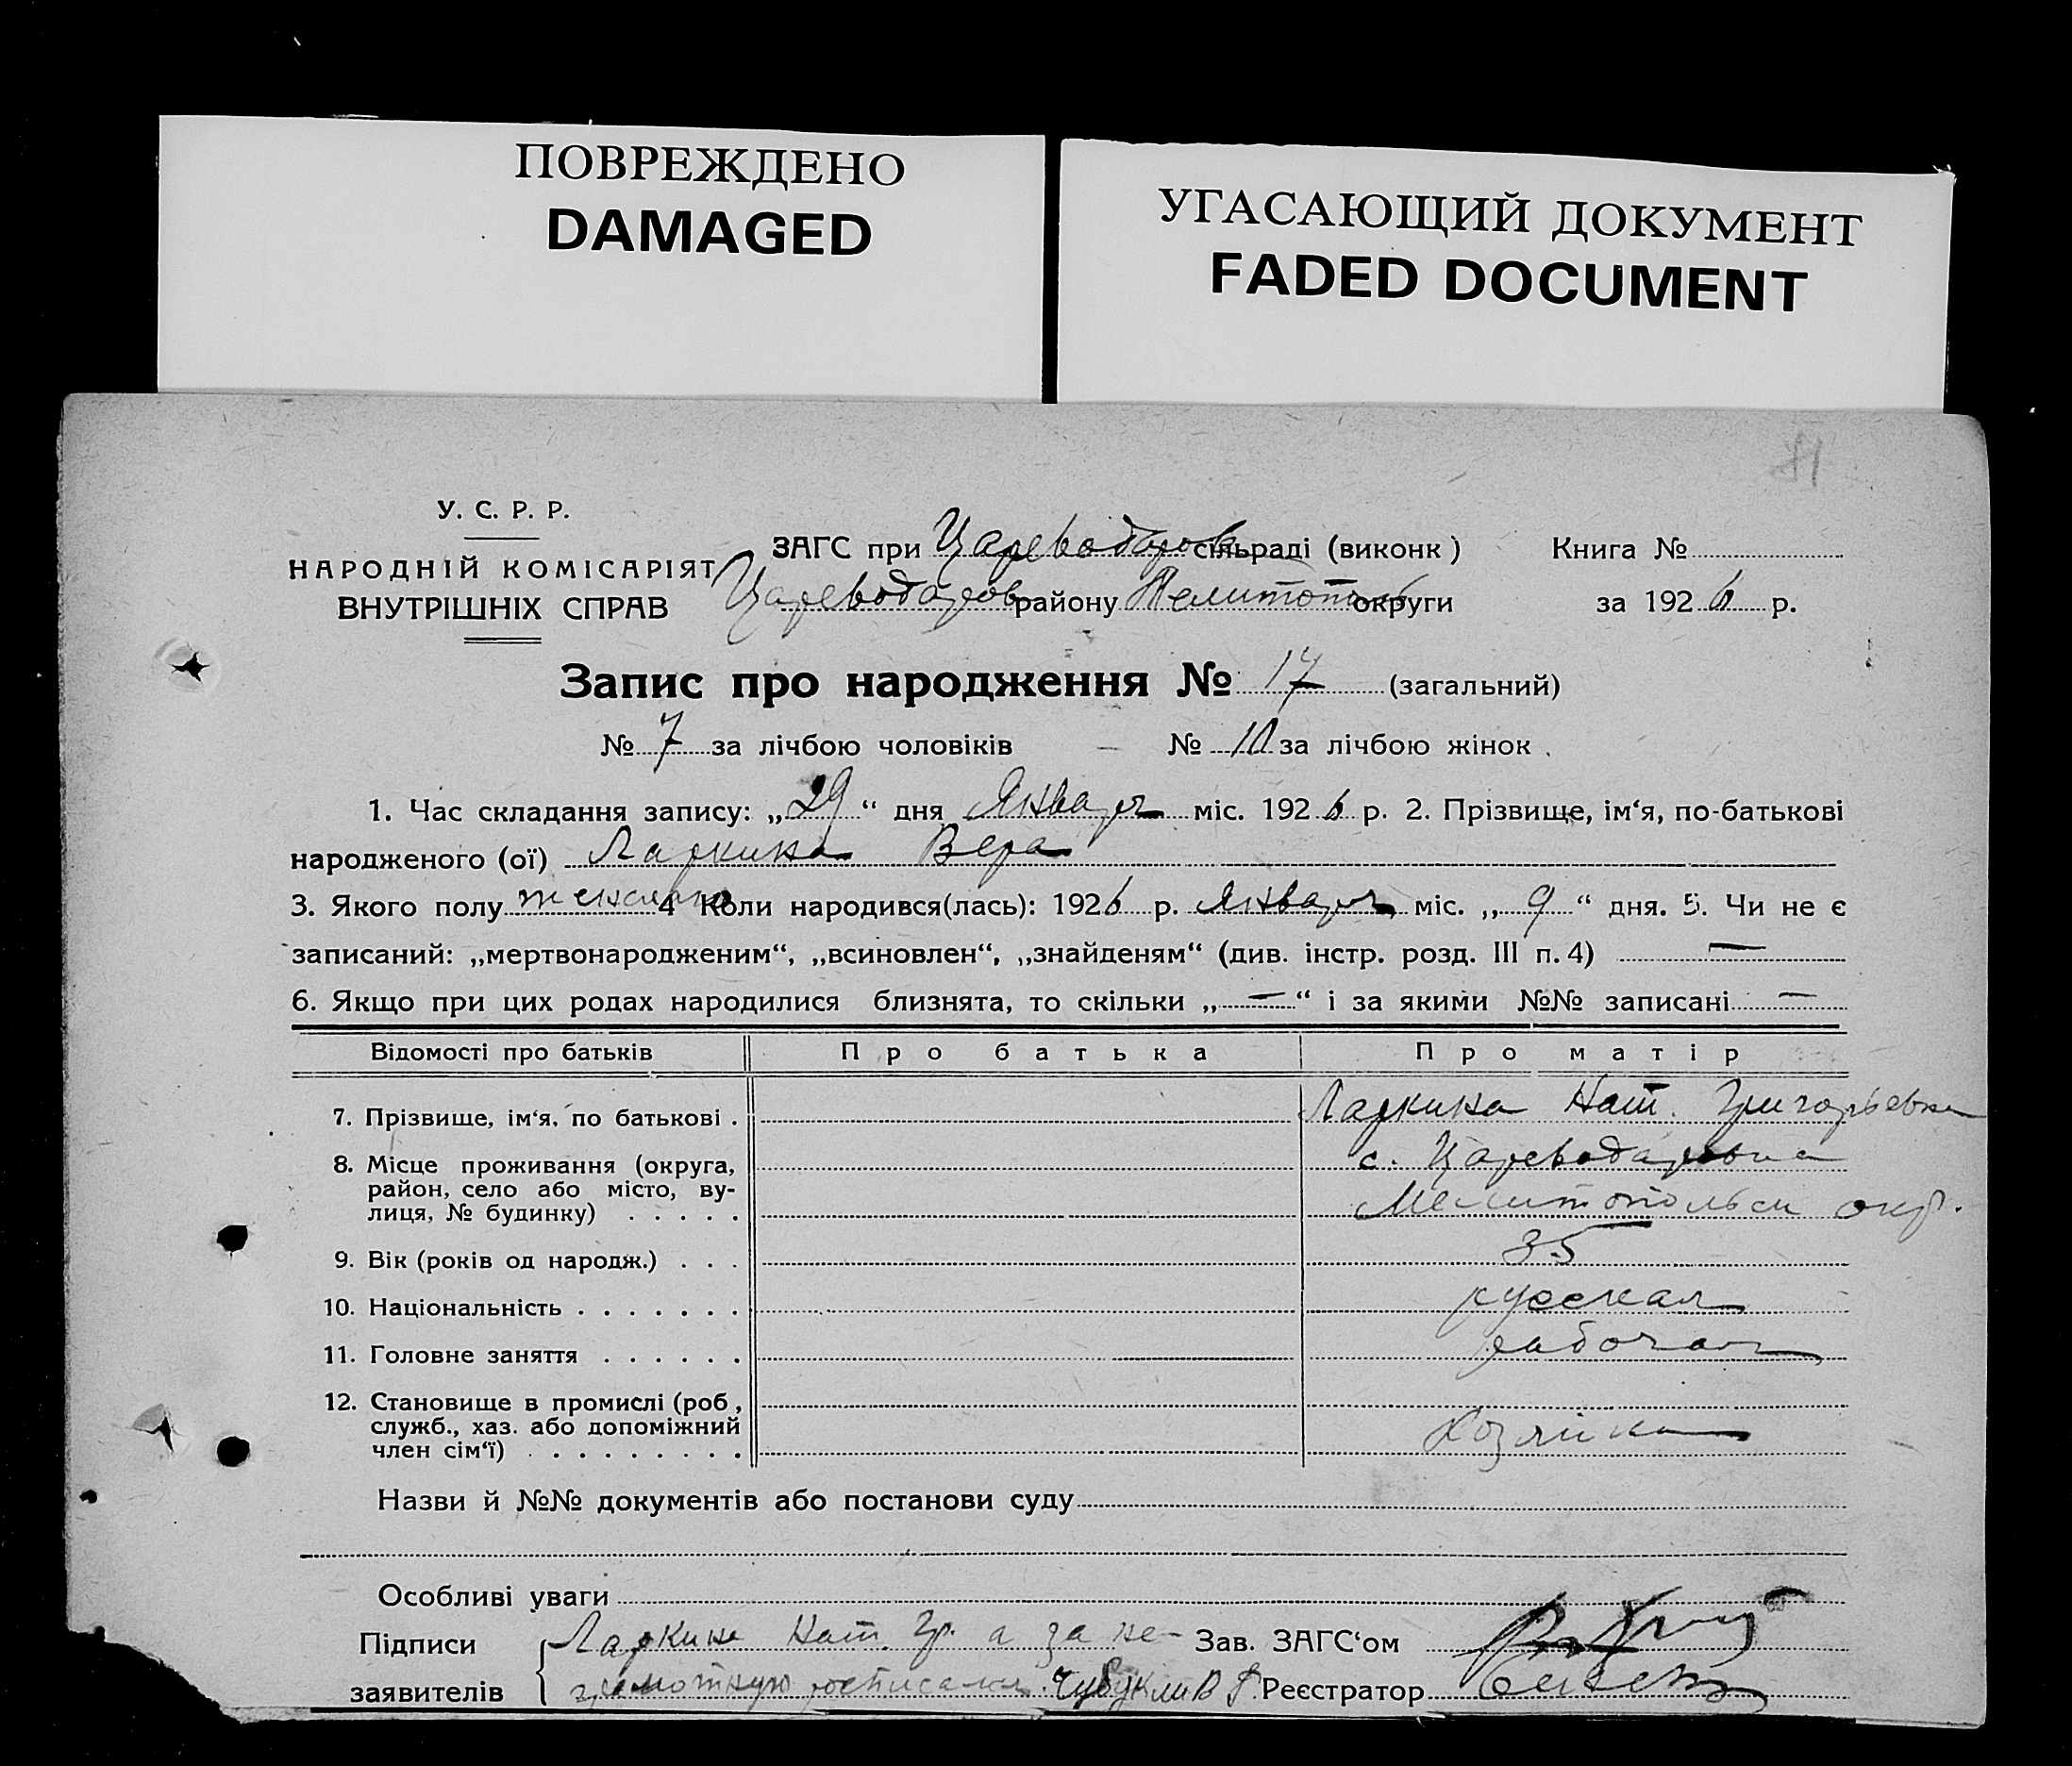 ПОВРЕЖДЕНО
DAMAGED
УГАСАЮЩИЙ ДОКУМЕНТ
FADED DOCUMENT
У. С. Р. Р.
НАРОДНІЙ КОМІСАРІЯТ
ВНУТРІШНІХ СПРАВ
ЗАГС при Цареводаров сільраді (виконк)
Книга №
Цареводаров району Мелитополь округи
за 1926 р.
Запис про народження № 17 (загальний)
№ 7 за лічбою чоловіків № 10 за лічбою жінок.
1. Час складання запису: „29“ дня Января міс. 1926 р. 2. Прізвище, ім‘я, по-батькові
народженого (ої) Ларкина Вера
3. Якого полу женского 4 Коли народився(лась): 1926 р. Января міс. „9“ дня. 5. Чи не є
записаний: „мертвонародженим“, „всиновлен“, „знайденям“ (див. інстр. розд. III п. 4) —
6. Якщо при цих родах народилися близнята, то скільки „—“ і за якими №№ записані —
Відомості про батьків Про батька Про матір
7. Прізвище, ім‘я, по батькові . Ларкина Нат. Григорьевна
8. Місце проживання (округа, с. Цареводаровка
район, село або місто, ву-
лиця, № будинку) . . . . . Мелитопольск окр.
9. Вік (років од народж.) . . . 35
10. Національність . . . . . . . русская
11. Головне заняття . . . . . . рабочая
12. Становище в промислі (роб.,
служб., хаз. або допоміжний
член сім‘ї) . . . . . . . . . Хозяйка
Назви й №№ документів або постанови суду
Особливі уваги
Підписи Ларкина Нат. Гр. а за не-
заявителів грамотную росписался
Зав. ЗАГС‘ом
Реєстратор